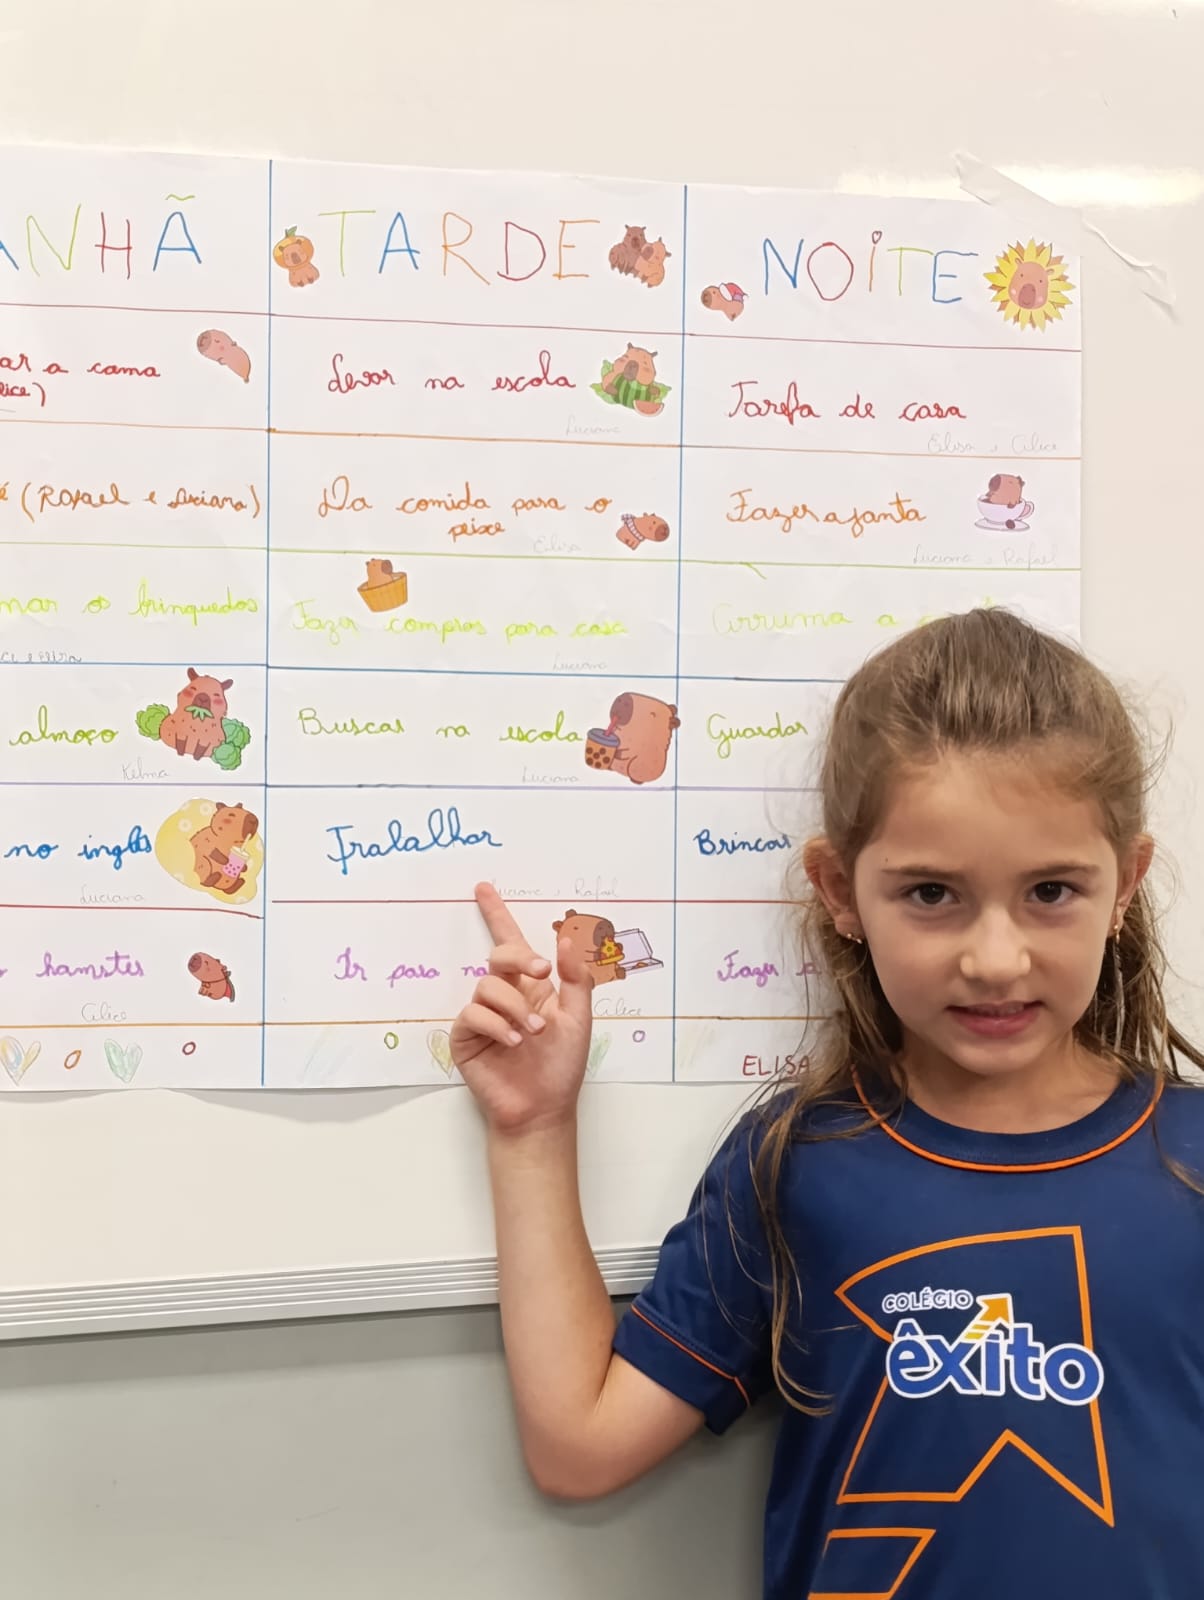 ANHÃ
TARDE
NOITE
ar a cama
lice)
Levar na escola
Luciana
Tarefa de casa
Elisa e Alice
é (Rafael e Luciana)
Da comida para o
peixe
Elisa
Fazer a janta
Luciana e Rafael
mar os brinquedos
Fazer compras para casa
Luciana
Arruma a
almoço
Kelma
Buscar na escola
Luciana
Guardar
no inglês
Luciana
Tralalhar
Luciana e Rafael
Brincar
hamster
Alice
Ir para na
Alice
Fazer a
ELISA
COLÉGIO
êxito